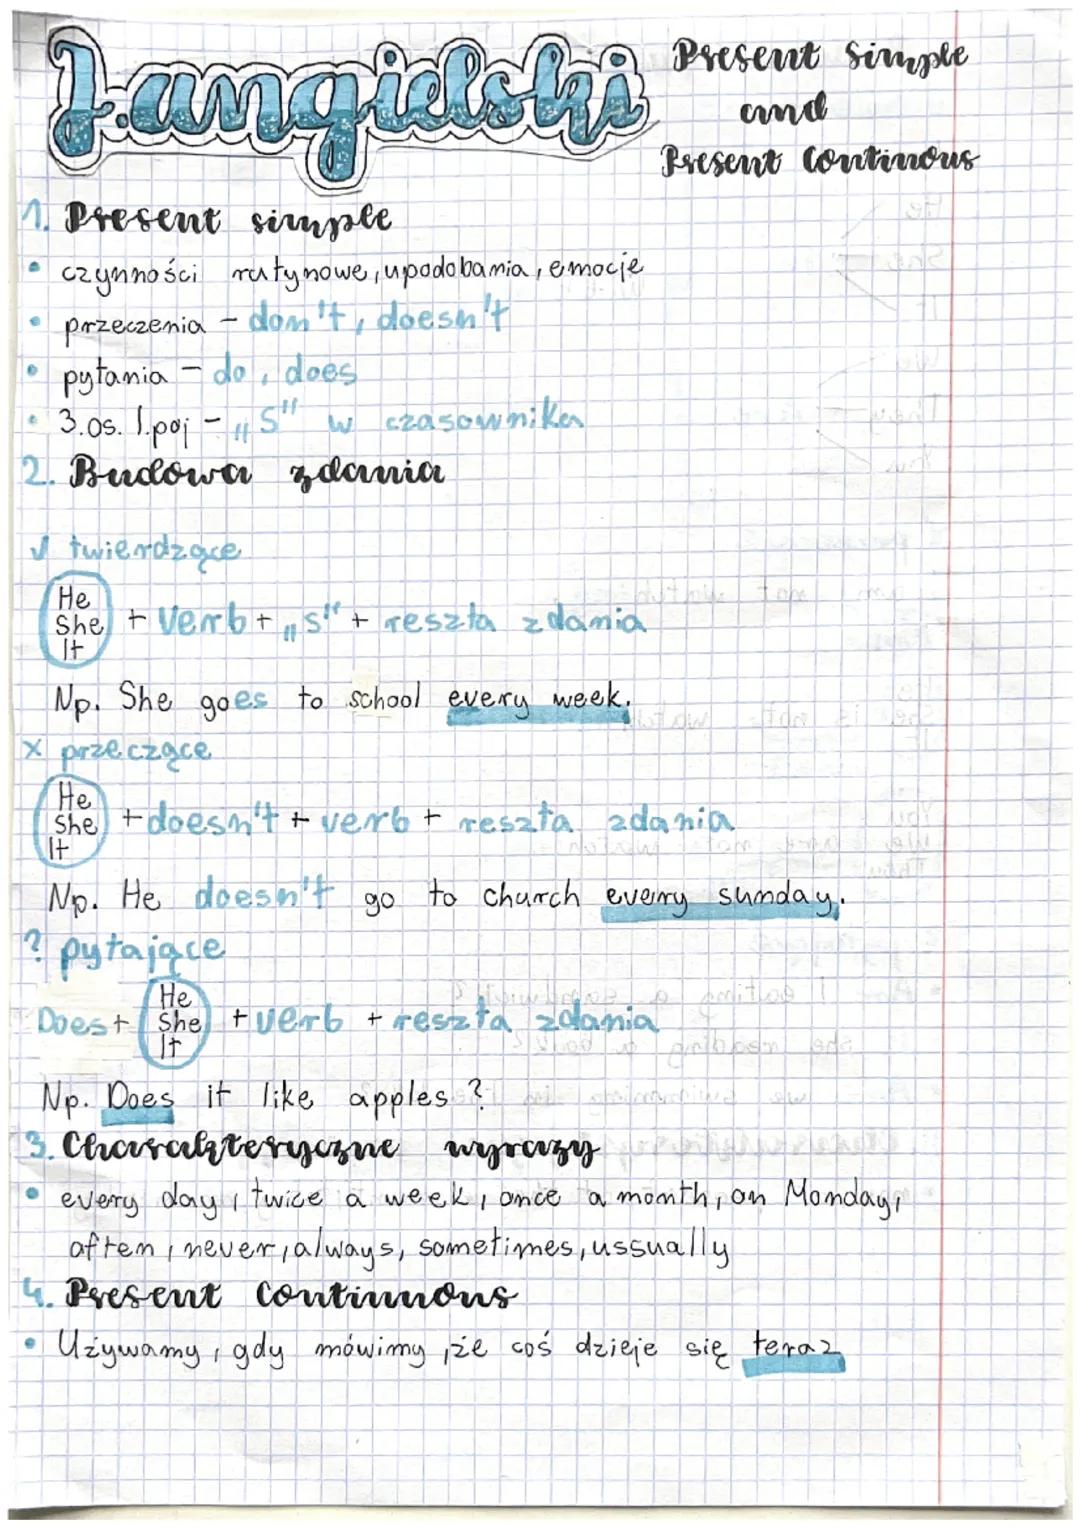 J. angielski
Present simple
and
Present Continous
1. Present simple
• czynności rutynowe, upodobania, emocje
• przeczenia – don't, doesn't
• pytania – do, does
• 3.os. l.poj – „S" w czasownika
2. Budowa zdania
√ twierdzące
He
She
It
+ Verb + „s" + reszta zdania
Np. She goes to school every week.
X przeczące
He
She
It
+ doesn't + verb + reszta zdania
Np. He doesn't go to church every sunday.
? pytające
Does +
He
She
It
+ verb + reszta zdania
Np. Does it like apples?
3. Charakteryczne wyrazy
• every day, twice a week, once a month, on Monday,
often, never, always, sometimes, ussually
4. Present Continuous
• Używamy, gdy mówimy, że coś dzieje się teraz